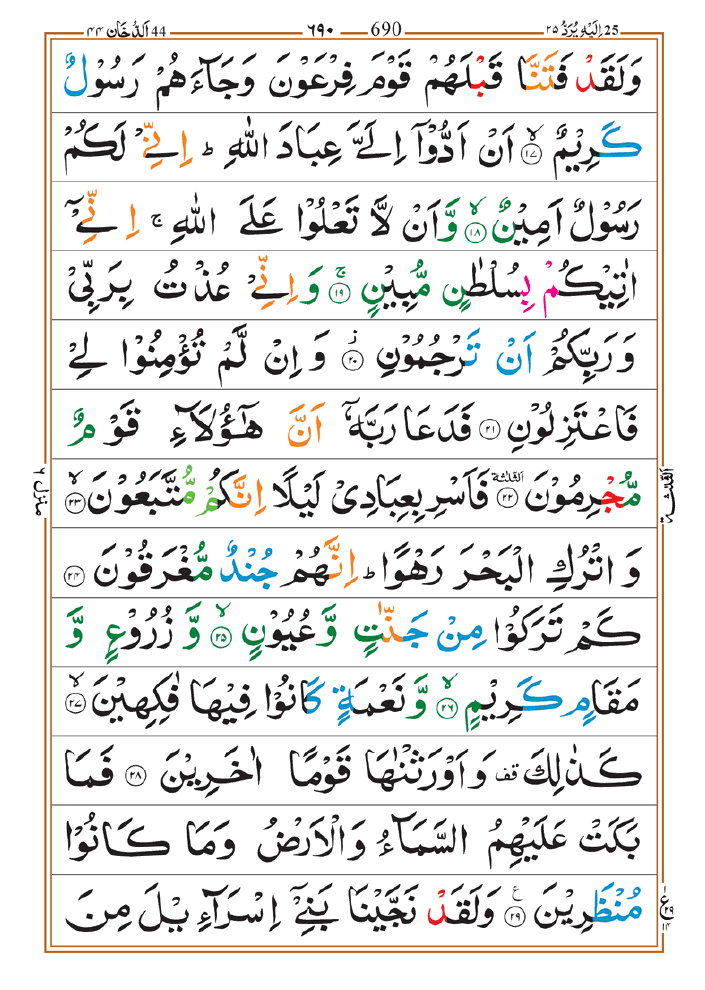 25 اِلَيْهِ يُرَدُّ ۲۵ ۶۹۰ 690 44 اَلدُّخَان ۴۴
وَلَقَدْ فَتَنَّا قَبْلَهُمْ قَوْمَ فِرْعَوْنَ وَجَآءَهُمْ رَسُوْلٌ
كَرِيْمٌ ۙ‏﴿۱۷﴾ اَنْ اَدُّوْۤا اِلَىَّ عِبَادَ اللّٰهِ ؕ اِنِّىْ لَكُمْ
رَسُوْلٌ اَمِيْنٌ ۙ‏﴿۱۸﴾ وَّاَنْ لَّا تَعْلُوْا عَلَى اللّٰهِ ۚ اِنِّىْۤ
اٰتِيْكُمْ بِسُلْطٰنٍ مُّبِيْنٍ ۚ‏﴿۱۹﴾ وَاِنِّىْ عُذْتُ بِرَبِّىْ
وَرَبِّكُمْ اَنْ تَرْجُمُوْنِ ؗ‏﴿۲۰﴾ وَاِنْ لَّمْ تُؤْمِنُوْا لِىْ
فَاعْتَزِلُوْنِ ﴿۲۱﴾ فَدَعَا رَبَّهٗۤ اَنَّ هٰٓؤُلَآءِ قَوْمٌ
مُّجْرِمُوْنَ ﴿۲۲﴾ الثلٰثة فَاَسْرِ بِعِبَادِىْ لَيْلًا اِنَّكُمْ مُّتَّبَعُوْنَ ۙ‏﴿۲۳﴾
الثلٰثة
منزل ۶
وَاتْرُكِ الْبَحْرَ رَهْوًا ؕ اِنَّهُمْ جُنْدٌ مُّغْرَقُوْنَ ﴿۲۴﴾
كَمْ تَرَكُوْا مِنْ جَنّٰتٍ وَّعُيُوْنٍ ۙ‏﴿۲۵﴾ وَّزُرُوْعٍ وَّ
مَقَامٍ كَرِيْمٍ ۙ‏﴿۲۶﴾ وَّنَعْمَةٍ كَانُوْا فِيْهَا فٰكِهِيْنَ ۙ‏﴿۲۷﴾
كَذٰلِكَ قف وَاَوْرَثْنٰهَا قَوْمًا اٰخَرِيْنَ ﴿۲۸﴾ فَمَا
بَكَتْ عَلَيْهِمُ السَّمَآءُ وَالْاَرْضُ وَمَا كَانُوْا
مُنْظَرِيْنَ ﴿۲۹﴾ ع وَلَقَدْ نَجَّيْنَا بَنِىْۤ اِسْرَآءِيْلَ مِنَ
ع ۲۹ ۱۴